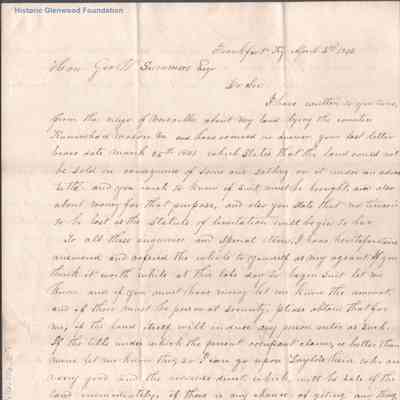 Historic Glenwood Foundation
Frankfort Ky April 3d
Hon. Geo W Summers Esqr
Dr Sir
I have written to you twice
from the neigh of about my land lying the counties
Kanawha & and have received no answer your last letter
bears date March 25th which states that the land could not
be sold in consequence of some one setling on it under an adverse
title, and you wish to know if suit must be brought, and also
about money for that purpose, and also you state that no time is
to be lost as the statute of limitation will begin to bar
To all these enquiries and items, I have heretofore
answered and refered the whole to yourself as my agent. If you
think it worth while at this late day to begin suit let me
know and if you must have money let me know the amount,
and if there must be personal security, please obtain that for
me, if the land itself will induce any person enter as such.
If the title under which the present occupant claims, is better than
mine let me know this, so I can go upon who are
very good and the
land immediately, if there is any chance of geting any thing